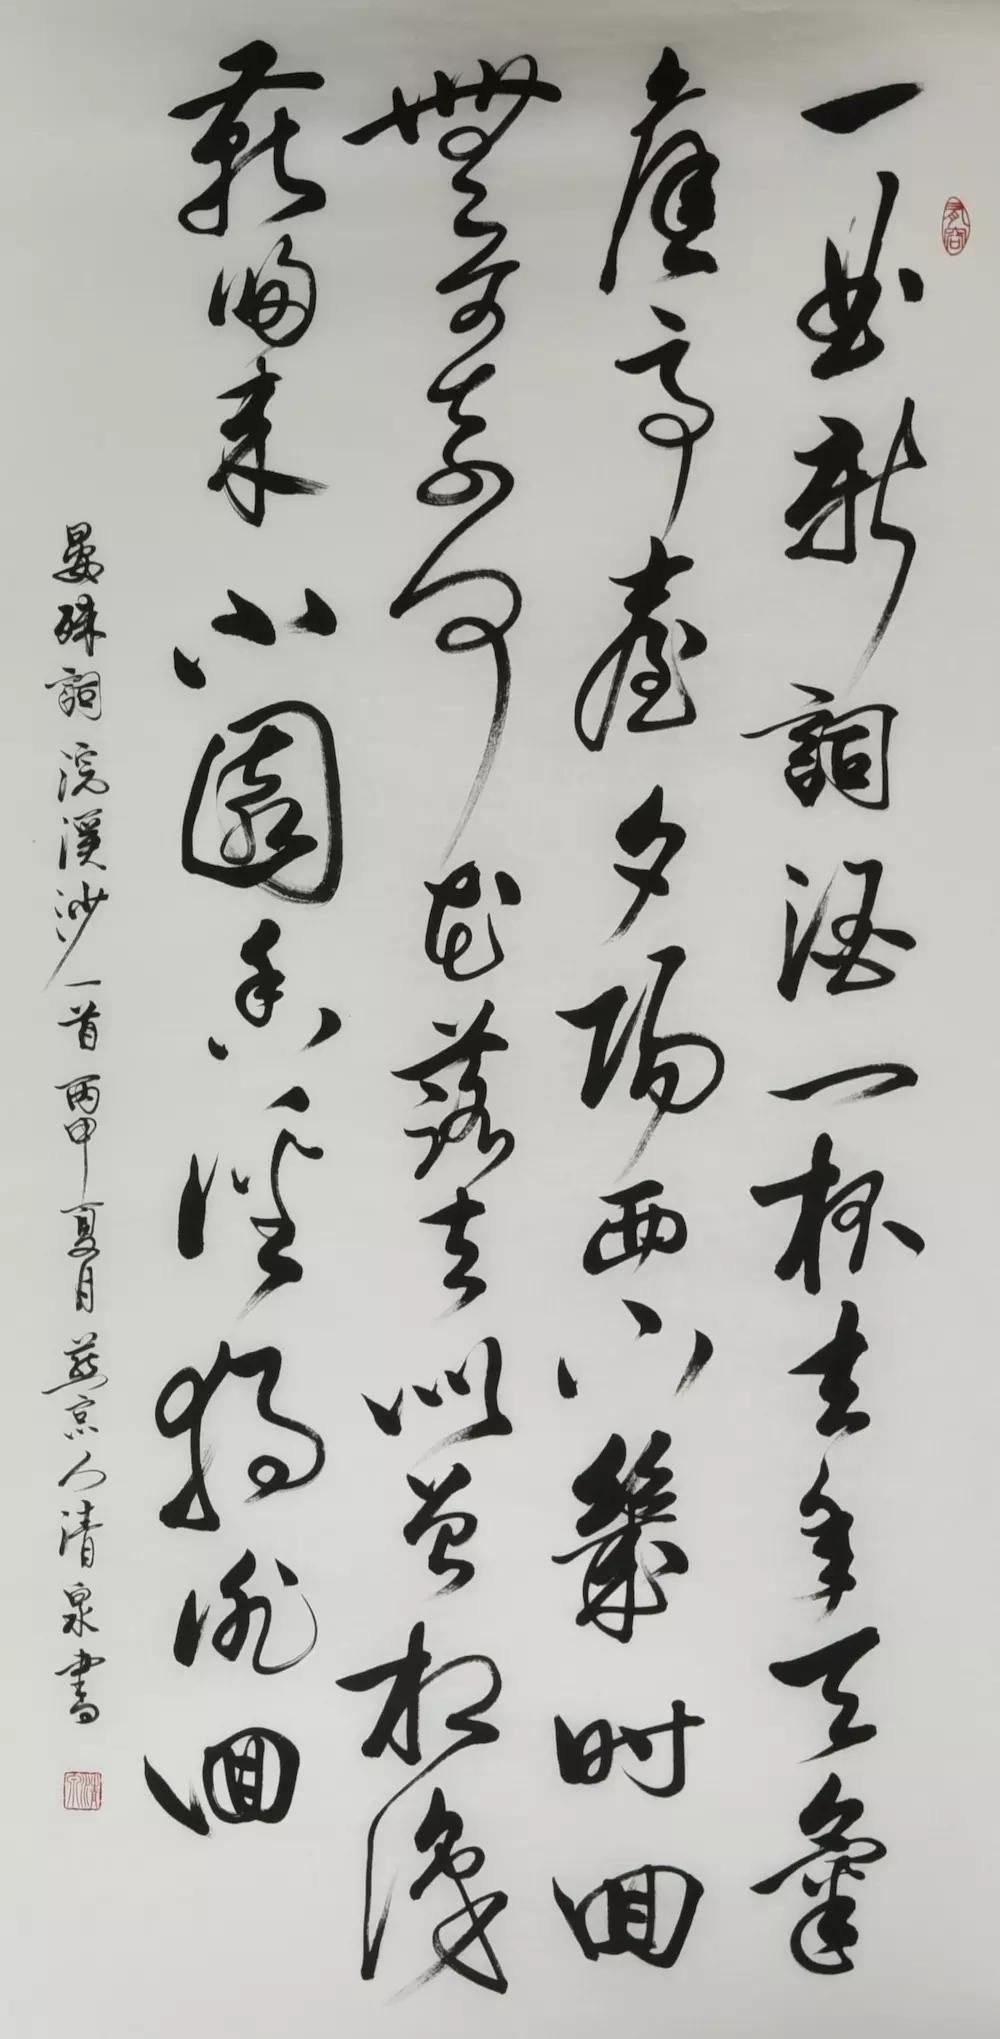 一曲新詞酒一杯去年天氣
舊亭臺夕陽西下幾时迴
無可奈何花落去似曾相識
燕歸来小園香徑獨徘徊
晏殊詞浣溪沙一首丙申夏月燕京人清泉書
有容
清泉